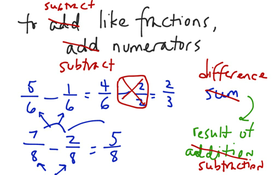 subtract
to add like fractions,
add numerators
subtract
5/6 - 1/6 = 4/6 ÷ 2/2 = 2/3
7/8 - 2/8 = 5/8
difference
sum
result of
addition
subtraction